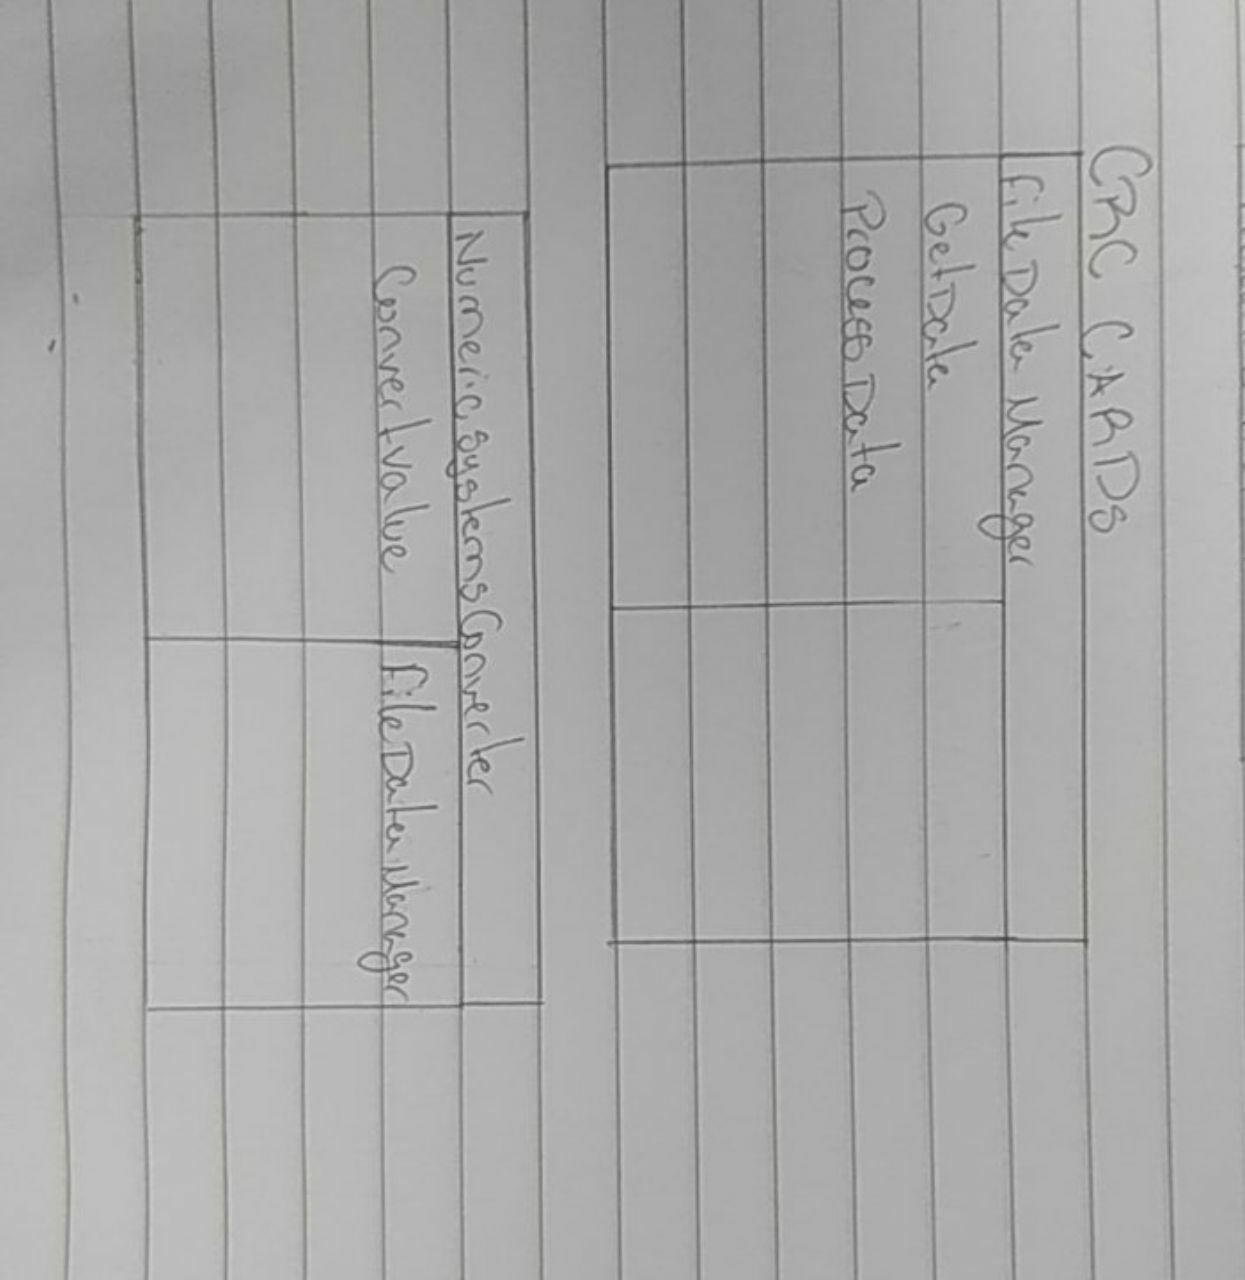 CRC CARDS
File Data Manager
GetData
Process Data
NumericSystemsConverter
Convertvalue
FileDataManager